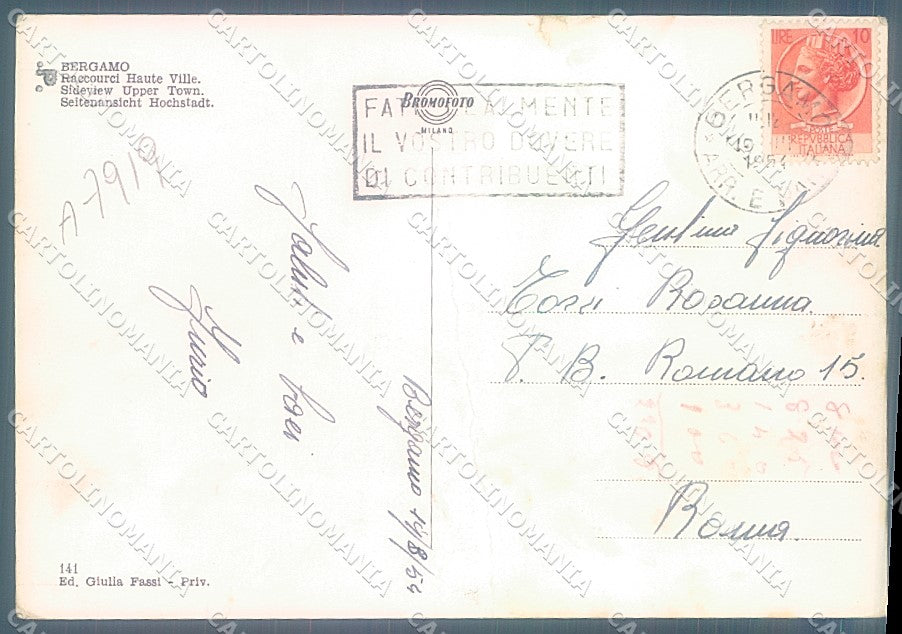 BERGAMO
Raccourci Haute Ville.
Sideview Upper Town.
Seitenansicht Hochstadt.
BROMOFOTO
MILANO
FATE REALMENTE
IL VOSTRO DOVERE
DI CONTRIBUENTI
LIRE 10
POSTE
REPVBBLICA
ITALIANA
BERGAMO
ARR. E
A 791
Saluti e
Furio
Bergamo 19/8/54
Gent.ma Signorina
Rosanna
P. B. Romano 15.
Roma.
141
Ed. Giulia Fassi - Priv.
CARTOLINOMANIA